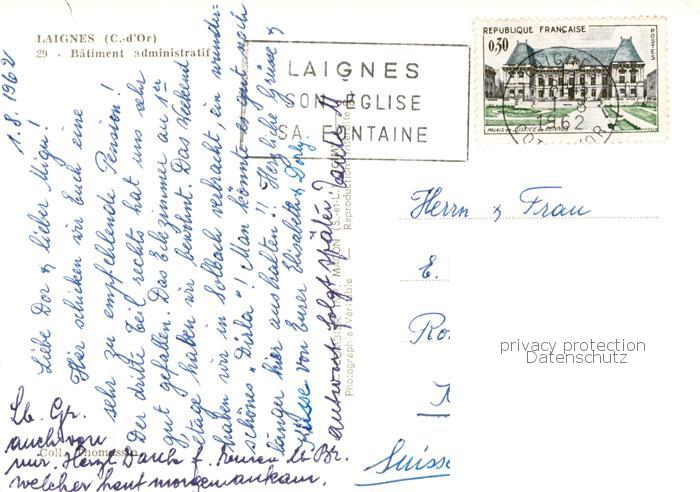 LAIGNES (C.-d'Or)
29 - Bâtiment administratif
1.8.1962
Liebe Dor & lieber Migu!
Hier schicken wir Euch eine
sehr zu empfehlende Pension!
Der dritte Teil rechts hat uns sehr
gut gefallen. Das Eckzimmer au 1er
étage haben wir bewohnt. Das Weekend
haben wir in Solbach verbracht, ein wunder-
schönes "Dörla"! Man könnte es gut noch
länger hier aushalten!! Herzliche Grüsse &
Küsse von Eurer Elisabeth & Dorly
antwort folgt später Tante M
Lb. Gr.
auch von
mir. Herzl. Dank f.
welcher heut morgen ankam.
Coll. Thomassin
LAIGNES
SON EGLISE
SA FONTAINE
REPUBLIQUE FRANÇAISE
0,30
POSTES
PALAIS de JUSTICE de RENNES
1962
MACON (S.-et-L.)
Photographie Véritable - Reproduction
Herrn & Frau
E.
Ro
Suisse
privacy protection
Datenschutz